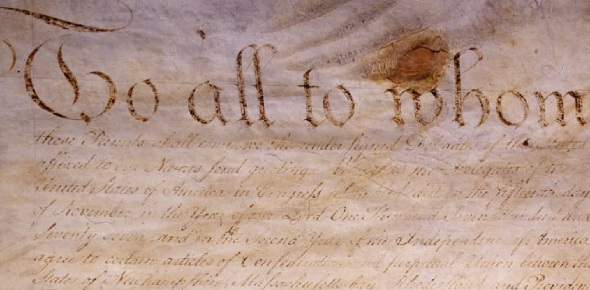 To all to whom
these Presents shall come, we the under signed Delegates of the States
affixed to our Names send greeting. Whereas the Delegates of the
United States of America in Congress assembled did on the fifteenth day
of November in the Year of our Lord One Thousand Seven Hundred and
Seventy seven, and in the Second Year of the Independence of America
agree to certain articles of Confederation and perpetual Union between the
States of Newhampshire, Massachusetts-bay, Rhodeisland and Providence